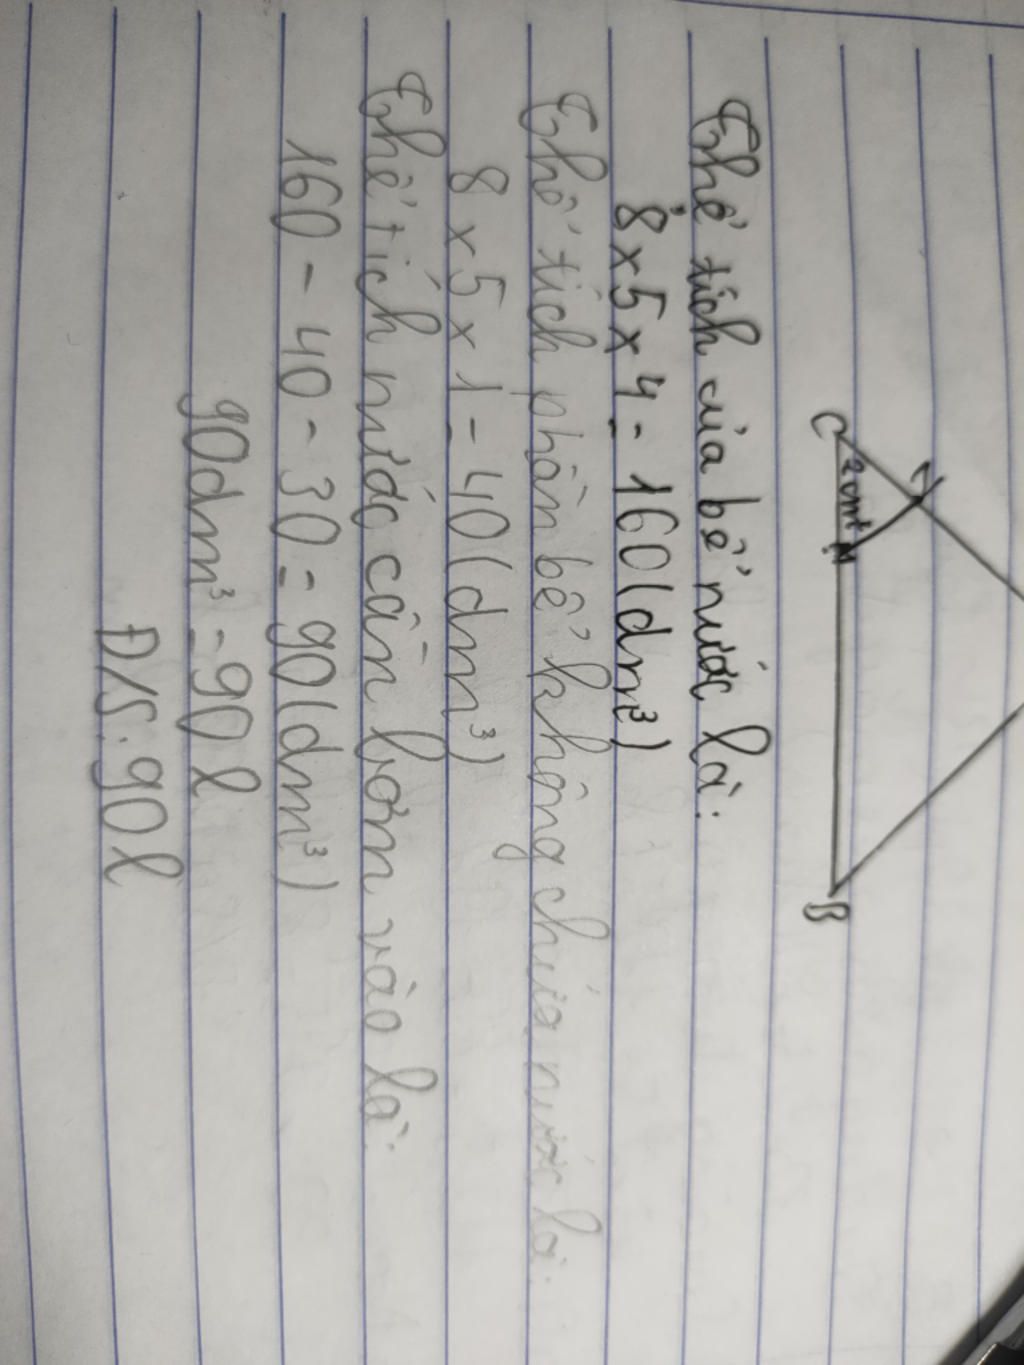 C
2cm²
M
B
Thể tích của bể nước là:
8 x 5 x 4 = 160 (dm³)
Thể tích phần bể không chứa nước là:
8 x 5 x 1 = 40 (dm³)
Thể tích nước cần bơm vào là:
160 - 40 - 30 = 90 (dm³)
90dm³ = 90 l
Đ/S: 90 l